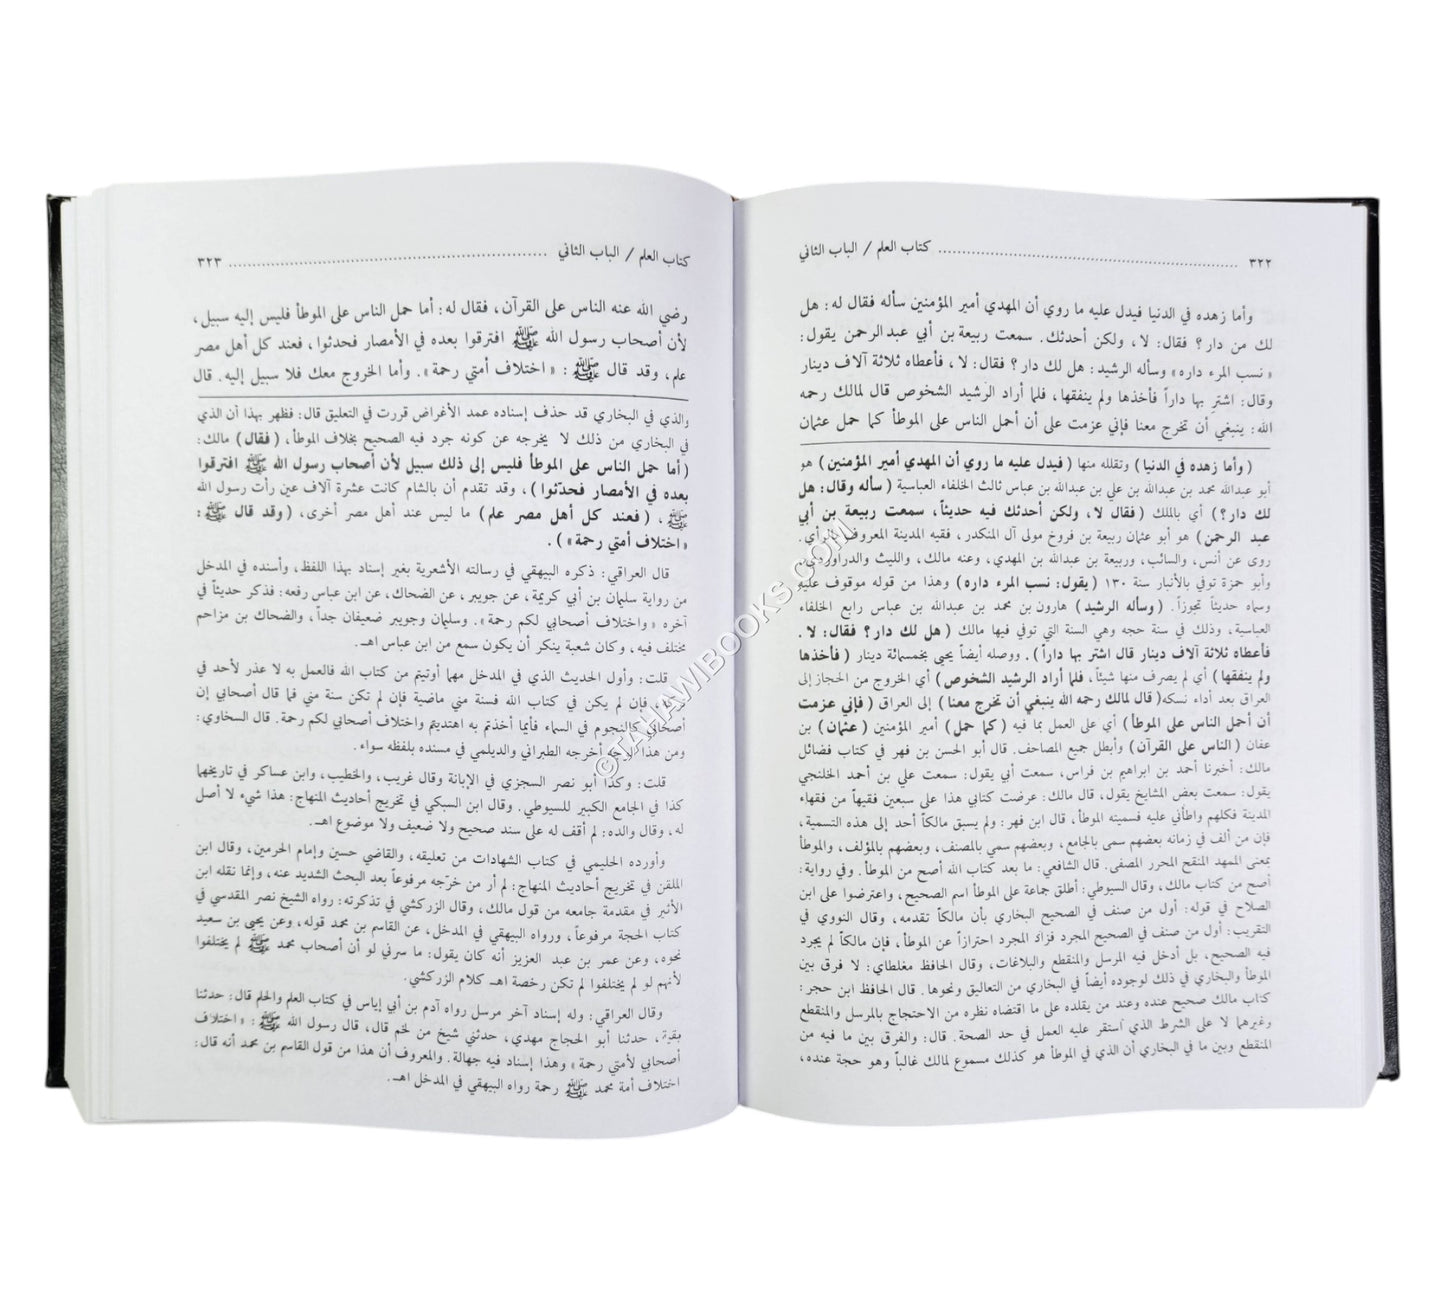 ٣٢٢ ........ كتاب العلم / الباب الثاني
وأما زهده في الدنيا فيدل عليه ما روي أن المهدي أمير المؤمنين سأله فقال له: هل
لك من دار؟ فقال: لا، ولكن أحدثك. سمعت ربيعة بن أبي عبد الرحمن يقول:
«نسب المرء داره» وسأله الرشيد: هل لك دار؟ فقال: لا، فأعطاه ثلاثة آلاف دينار
وقال: اشترِ بها داراً فأخذها ولم ينفقها، فلما أراد الرشيد الشخوص قال لمالك رحمه
الله: ينبغي أن تخرج معنا فإني عزمت على أن أحمل الناس على الموطأ كما حمل عثمان
(وأما زهده في الدنيا) وتقلله منها (فيدل عليه ما روي أن المهدي أمير المؤمنين) هو
أبو عبدالله محمد بن عبدالله بن علي بن عبدالله بن عباس ثالث الخلفاء العباسية (سأله وقال: هل
لك دار؟) أي بالملك (فقال لا، ولكن أحدثك فيه حديثاً، سمعت ربيعة بن أبي
عبد الرحمن) هو أبو عثمان ربيعة بن فروخ مولى آل المنكدر، فقيه المدينة المعروف بالرأي.
روى عن أنس، والسائب، وربيعة بن عبدالله بن المهدي، وعنه مالك، والليث والدراوردي،
وأبو حمزة توفي بالأنبار سنة ١٣٠ (يقول: نسب المرء داره) وهذا من قوله موقوف عليه
وسماه حديثاً تجوزاً. (وسأله الرشيد) هارون بن محمد بن عبدالله بن عباس رابع الخلفاء
العباسية، وذلك في سنة حجه وهي السنة التي توفي فيها مالك (هل لك دار؟ فقال: لا.
فأعطاه ثلاثة آلاف دينار قال اشتر بها داراً). ووصله أيضاً يحيى بخمسمائة دينار (فأخذها
ولم ينفقها) أي لم يصرف منها شيئاً. فلما أراد الرشيد الشخوص) أي الخروج من الحجاز إلى
العراق بعد أداء نسكه (قال لمالك رحمه الله ينبغي أن تخرج معنا) إلى العراق (فإني عزمت
أن أحمل الناس على الموطأ) أي على العمل بما فيه (كما حمل) أمير المؤمنين (عثمان) بن
عفان (الناس على القرآن) وأبطل جميع المصاحف. قال أبو الحسن بن فهر في كتاب فضائل
مالك: أخبرنا أحمد بن ابراهيم بن فراس، سمعت أبي يقول: سمعت علي بن أحمد الخلنجي
يقول: سمعت بعض المشايخ يقول، قال مالك: عرضت كتابي هذا على سبعين فقيهاً من فقهاء
المدينة فكلهم واطأني عليه فسميته الموطأ، قال ابن فهر: ولم يسبق مالكاً أحد إلى هذه التسمية،
فإن من ألف في زمانه بعضهم سمى بالجامع، وبعضهم سمي بالمصنف، وبعضهم بالمؤلف، والموطأ
بمعنى الممهد المنقح المحرر المصفى. قال الشافعي: ما بعد كتاب الله أصح من الموطأ. وفي رواية:
أصح من كتاب مالك، وقال السيوطي: أطلق جماعة على الموطأ اسم الصحيح، واعترضوا على ابن
الصلاح في قوله: أول من صنف في الصحيح البخاري بأن مالكاً تقدمه، وقال النووي في
التقريب: أول من صنف في الصحيح المجرد فزاد المجرد احترازاً عن الموطأ، فإن مالكاً لم يجرد
فيه الصحيح، بل أدخل فيه المرسل والمنقطع والبلاغات، وقال الحافظ مغلطاي: لا فرق بين
الموطأ والبخاري في ذلك لوجوده أيضاً في البخاري من التعاليق ونحوها. قال الحافظ ابن حجر:
كتاب مالك صحيح عنده وعند من يقلده على ما اقتضاه نظره من الاحتجاج بالمرسل والمنقطع
وغيرهما لا على الشرط الذي استقر عليه العمل في حد الصحة. قال: والفرق بين ما فيه من
المنقطع وبين ما في البخاري أن الذي في الموطأ هو كذلك مسموع لمالك غالباً وهو حجة عنده،
كتاب العلم / الباب الثاني ........ ٣٢٣
رضي الله عنه الناس على القرآن، فقال له: أما حمل الناس على الموطأ فليس إليه سبيل،
لأن أصحاب رسول الله ﷺ افترقوا بعده في الأمصار فحدثوا، فعند كل أهل مصر
علم، وقد قال ﷺ: «اختلاف أمتي رحمة». وأما الخروج معك فلا سبيل إليه. قال
والذي في البخاري قد حذف إسناده عمد الأغراض قررت في التعليق قال: فظهر بهذا أن الذي
في البخاري من ذلك لا يخرجه عن كونه جرد فيه الصحيح بخلاف الموطأ، (فقال) مالك:
(أما حمل الناس على الموطأ فليس إلى ذلك سبيل لأن أصحاب رسول الله ﷺ افترقوا
بعده في الأمصار فحدثوا)، وقد تقدم أن بالشام كانت عشرة آلاف عين رأت رسول الله
ﷺ، (فعند كل أهل مصر علم) ما ليس عند أهل مصر أخرى، (وقد قال ﷺ:
«اختلاف أمتي رحمة»).
قال العراقي: ذكره البيهقي في رسالته الأشعرية بغير إسناد بهذا اللفظ، وأسنده في المدخل
من رواية سليمان بن أبي كريمة، عن جويبر، عن الضحاك، عن ابن عباس رفعه: فذكر حديثاً في
آخره «واختلاف أصحابي لكم رحمة». وسليمان وجويبر ضعيفان جداً، والضحاك بن مزاحم
مختلف فيه، وكان شعبة ينكر أن يكون سمع من ابن عباس اهـ.
قلت: وأول الحديث الذي في المدخل مهما أوتيتم من كتاب الله فالعمل به لا عذر لأحد في
تركه، فإن لم يكن في كتاب الله فسنة مني ماضية فإن لم تكن سنة مني فما قال أصحابي إن
أصحابي كالنجوم في السماء فأيما أخذتم به اهتديتم واختلاف أصحابي لكم رحمة. قال السخاوي:
ومن هذا الوجه أخرجه الطبراني والديلمي في مسنده بلفظه سواء.
قلت: وكذا أبو نصر السجزي في الإبانة وقال غريب، والخطيب، وابن عساكر في تاريخهما
كذا في الجامع الكبير للسيوطي. وقال ابن السبكي في تخريج أحاديث المنهاج: هذا شيء لا أصل
له، وقال والده: لم أقف له على سند صحيح ولا ضعيف ولا موضوع اهـ.
وأورده الحليمي في كتاب الشهادات من تعليقه، والقاضي حسين وإمام الحرمين، وقال ابن
الملقن في تخريج أحاديث المنهاج: لم أر من خرّجه مرفوعاً بعد البحث الشديد عنه، وإنما نقله ابن
الأثير في مقدمة جامعه من قول مالك، وقال الزركشي في تذكرته: رواه الشيخ نصر المقدسي في
كتاب الحجة مرفوعاً، ورواه البيهقي في المدخل، عن القاسم بن محمد قوله، وعن يحيى بن سعيد
نحوه، وعن عمر بن عبد العزيز أنه كان يقول: ما سرني لو أن أصحاب محمد ﷺ لم يختلفوا
لأنهم لو لم يختلفوا لم تكن رخصة اهـ كلام الزركشي.
وقال العراقي: وله إسناد آخر مرسل رواه آدم بن أبي إياس في كتاب العلم والحلم قال: حدثنا
بقية، حدثنا أبو الحجاج مهدي، حدثني شيخ من لخم قال، قال رسول الله ﷺ: «اختلاف
أصحابي لأمتي رحمة» وهذا إسناد فيه جهالة. والمعروف أن هذا من قول القاسم بن محمد أنه قال:
اختلاف أمة محمد ﷺ رحمة رواه البيهقي في المدخل اهـ.
©TAHAWIBOOKS.COM